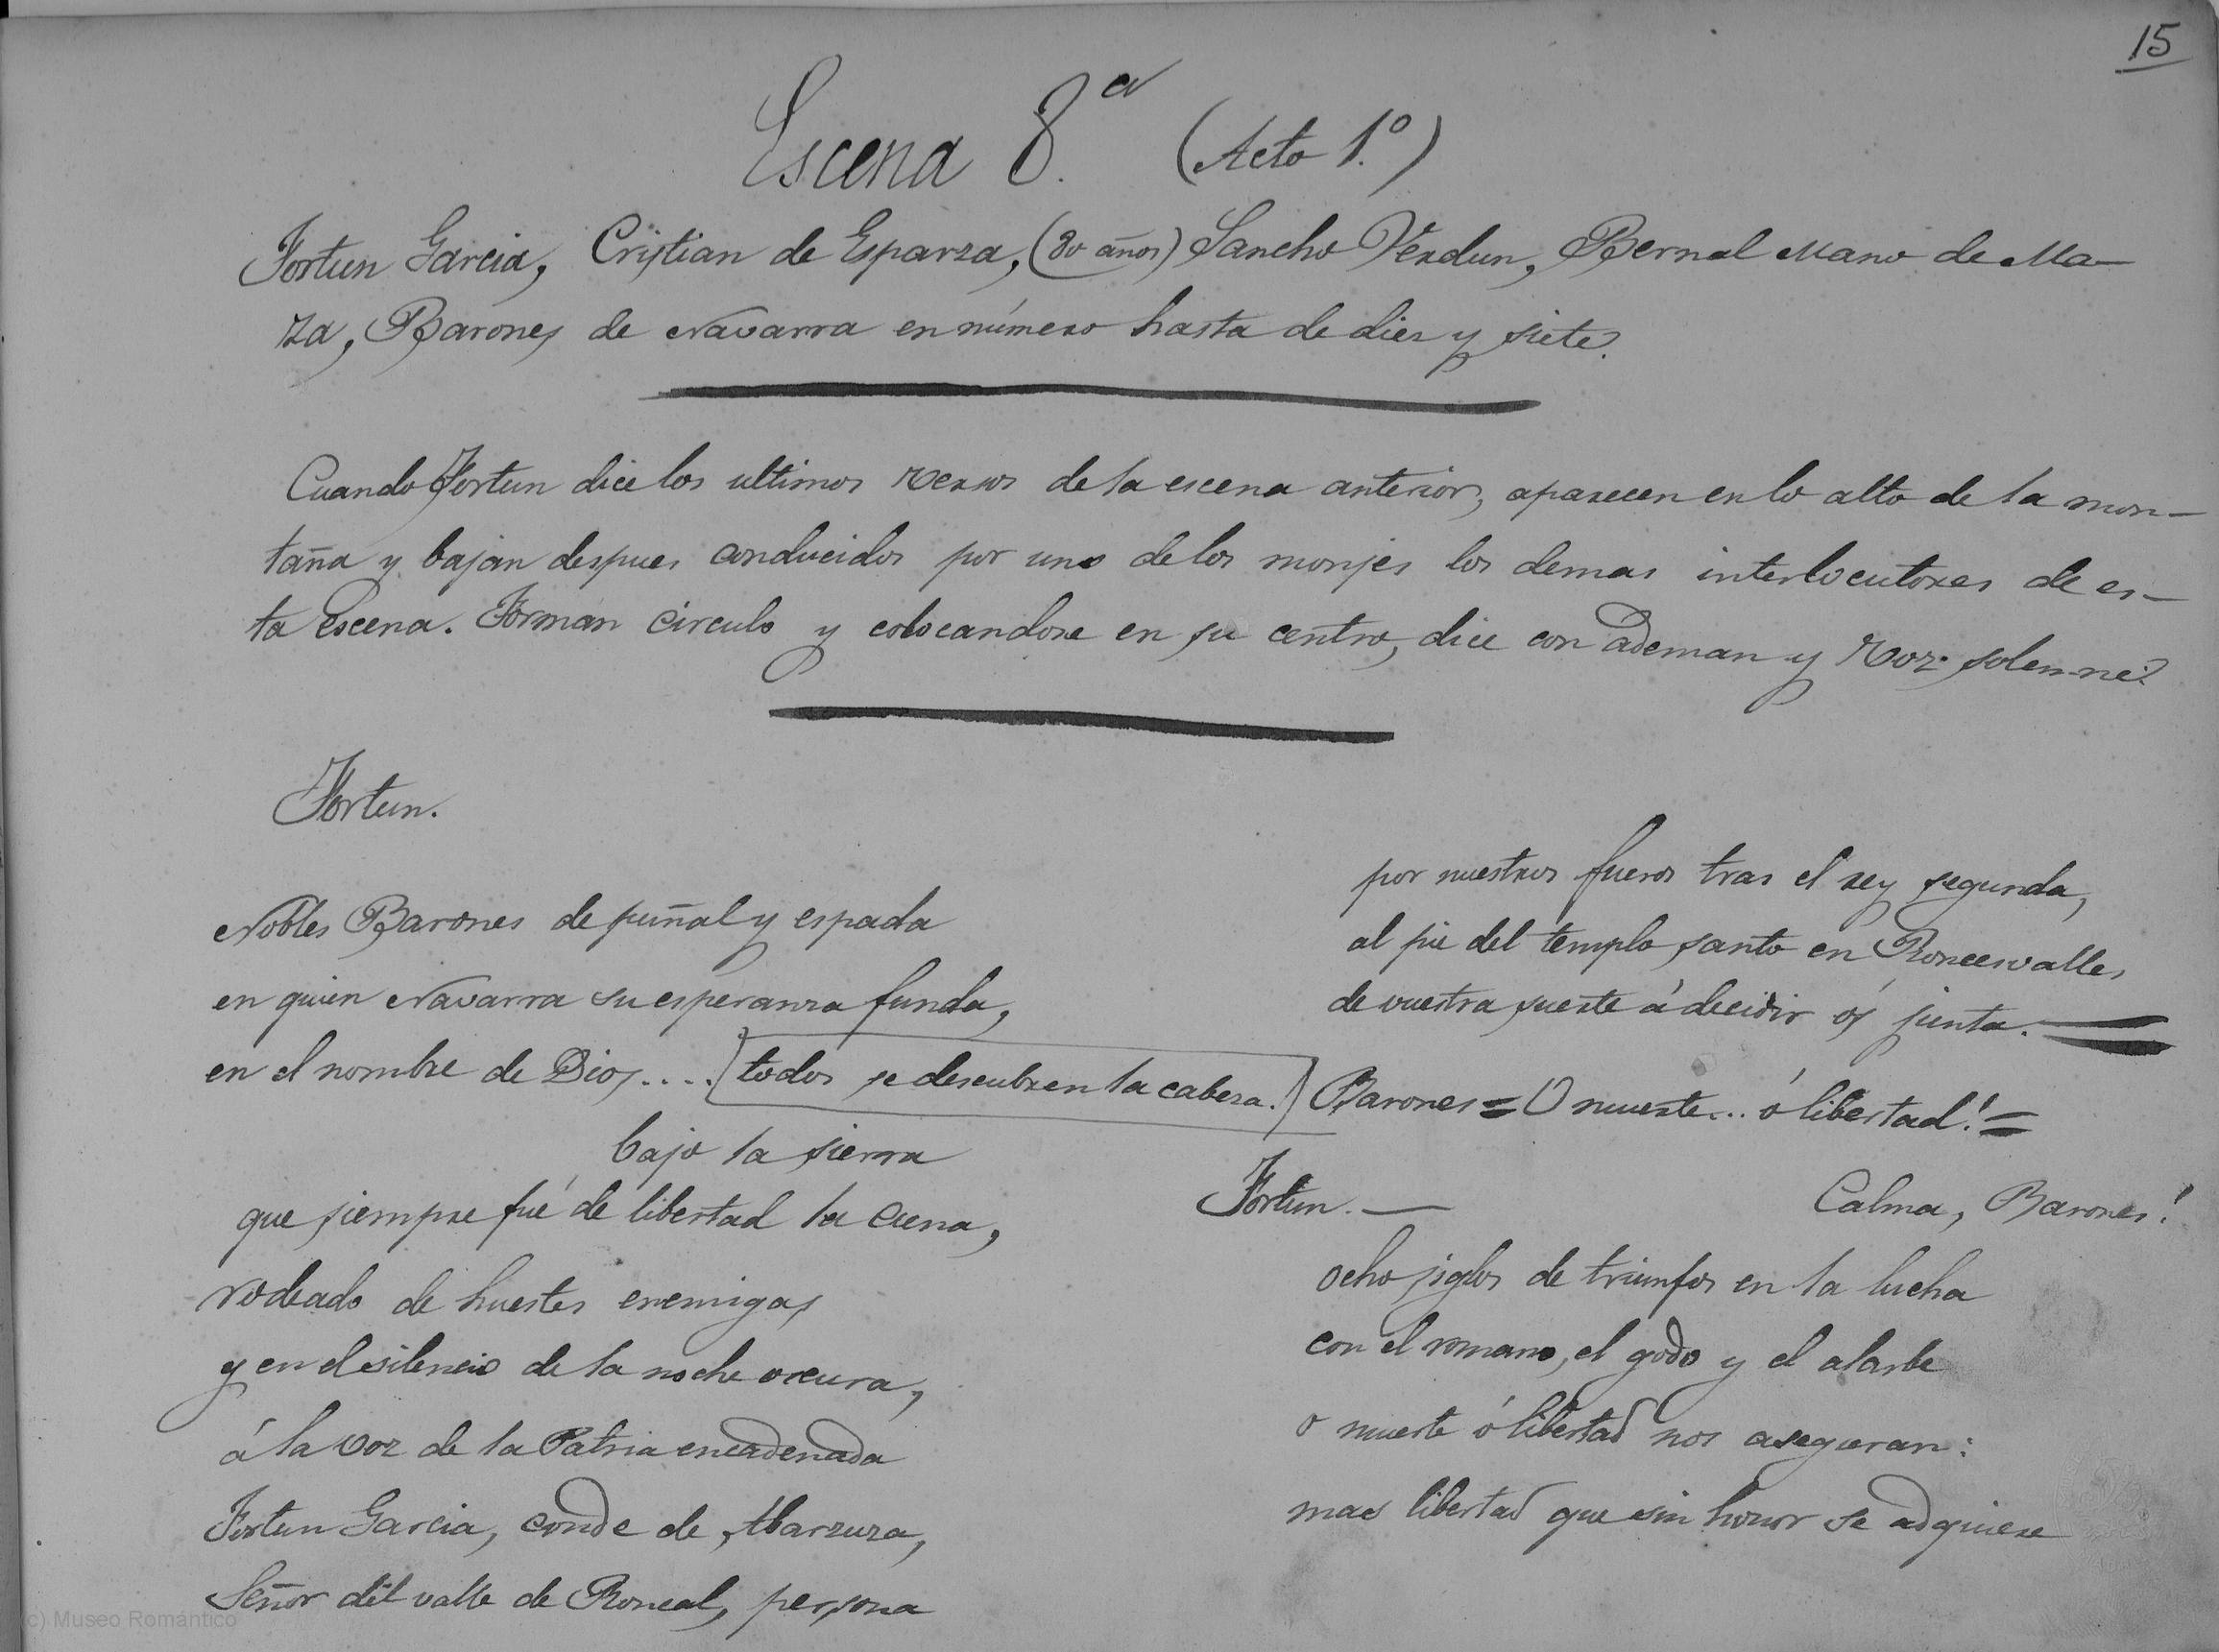 15
Escena 8.ª (Acto 1.º)
Fortun Garcia, Cristian de Esparza, (30 años) Sancho Verdun, Bernal Mano de Ma-
za, Barones de Navarra en número hasta de diez y siete.
Cuando Fortun dice los ultimos versos de la escena anterior, aparecen en lo alto de la mon-
taña y bajan despues conducidos por uno de los monjes los demas interlocutores de es-
ta Escena. Forman circulo y colocandose en su centro, dice con ademan y voz solemne:
Fortun.
Nobles Barones de puñal y espada
en quien Navarra su esperanza funda,
en el nombre de Dios.... (todos se descubren la cabeza.)
bajo la sierra
que siempre fué de libertad la cuna,
rodeado de huestes enemigas
y en el silencio de la noche oscura,
á la voz de la Patria encadenada
Fortun Garcia, conde de Abarzuza,
Señor del valle de Roncal, persona
por nuestros fueros tras el rey segunda,
al pie del templo santo en Roncesvalles
de vuestra suerte á decidir os junta.
Barones = O muerte... ó libertad! =
Fortun. — Calma, Barones!
ocho siglos de triunfos en la lucha
con el romano, el godo y el alarbe
o muerte ó libertad nos aseguran:
mas libertad que sin honor se adquiere
(c) Museo Romántico